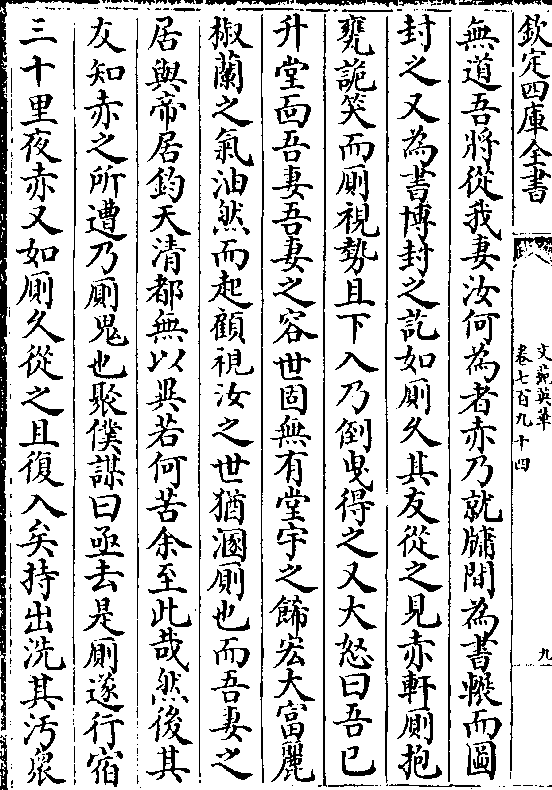 欽定四庫全書
文苑英華
卷七百九十四
九
無道吾將從我妻汝何為者赤乃就牖間為書輾而圓
封之又為書博封之訖如厠久其友從之見赤軒厠抱
甕詭笑而厠視勢且下入乃倒曳得之又大怒曰吾已
升堂面吾妻吾妻之容世固無有堂宇之餙宏大富麗
椒蘭之氣油然而起顧視汝之世猶溷厠也而吾妻之
居與帝居鈞天清都無以異若何苦余至此哉然後其
友知赤之所遭乃厠鬼也聚僕謀曰亟去是厠遂行宿
三十里夜赤又如厠久從之且復入矣持出洗其汚衆